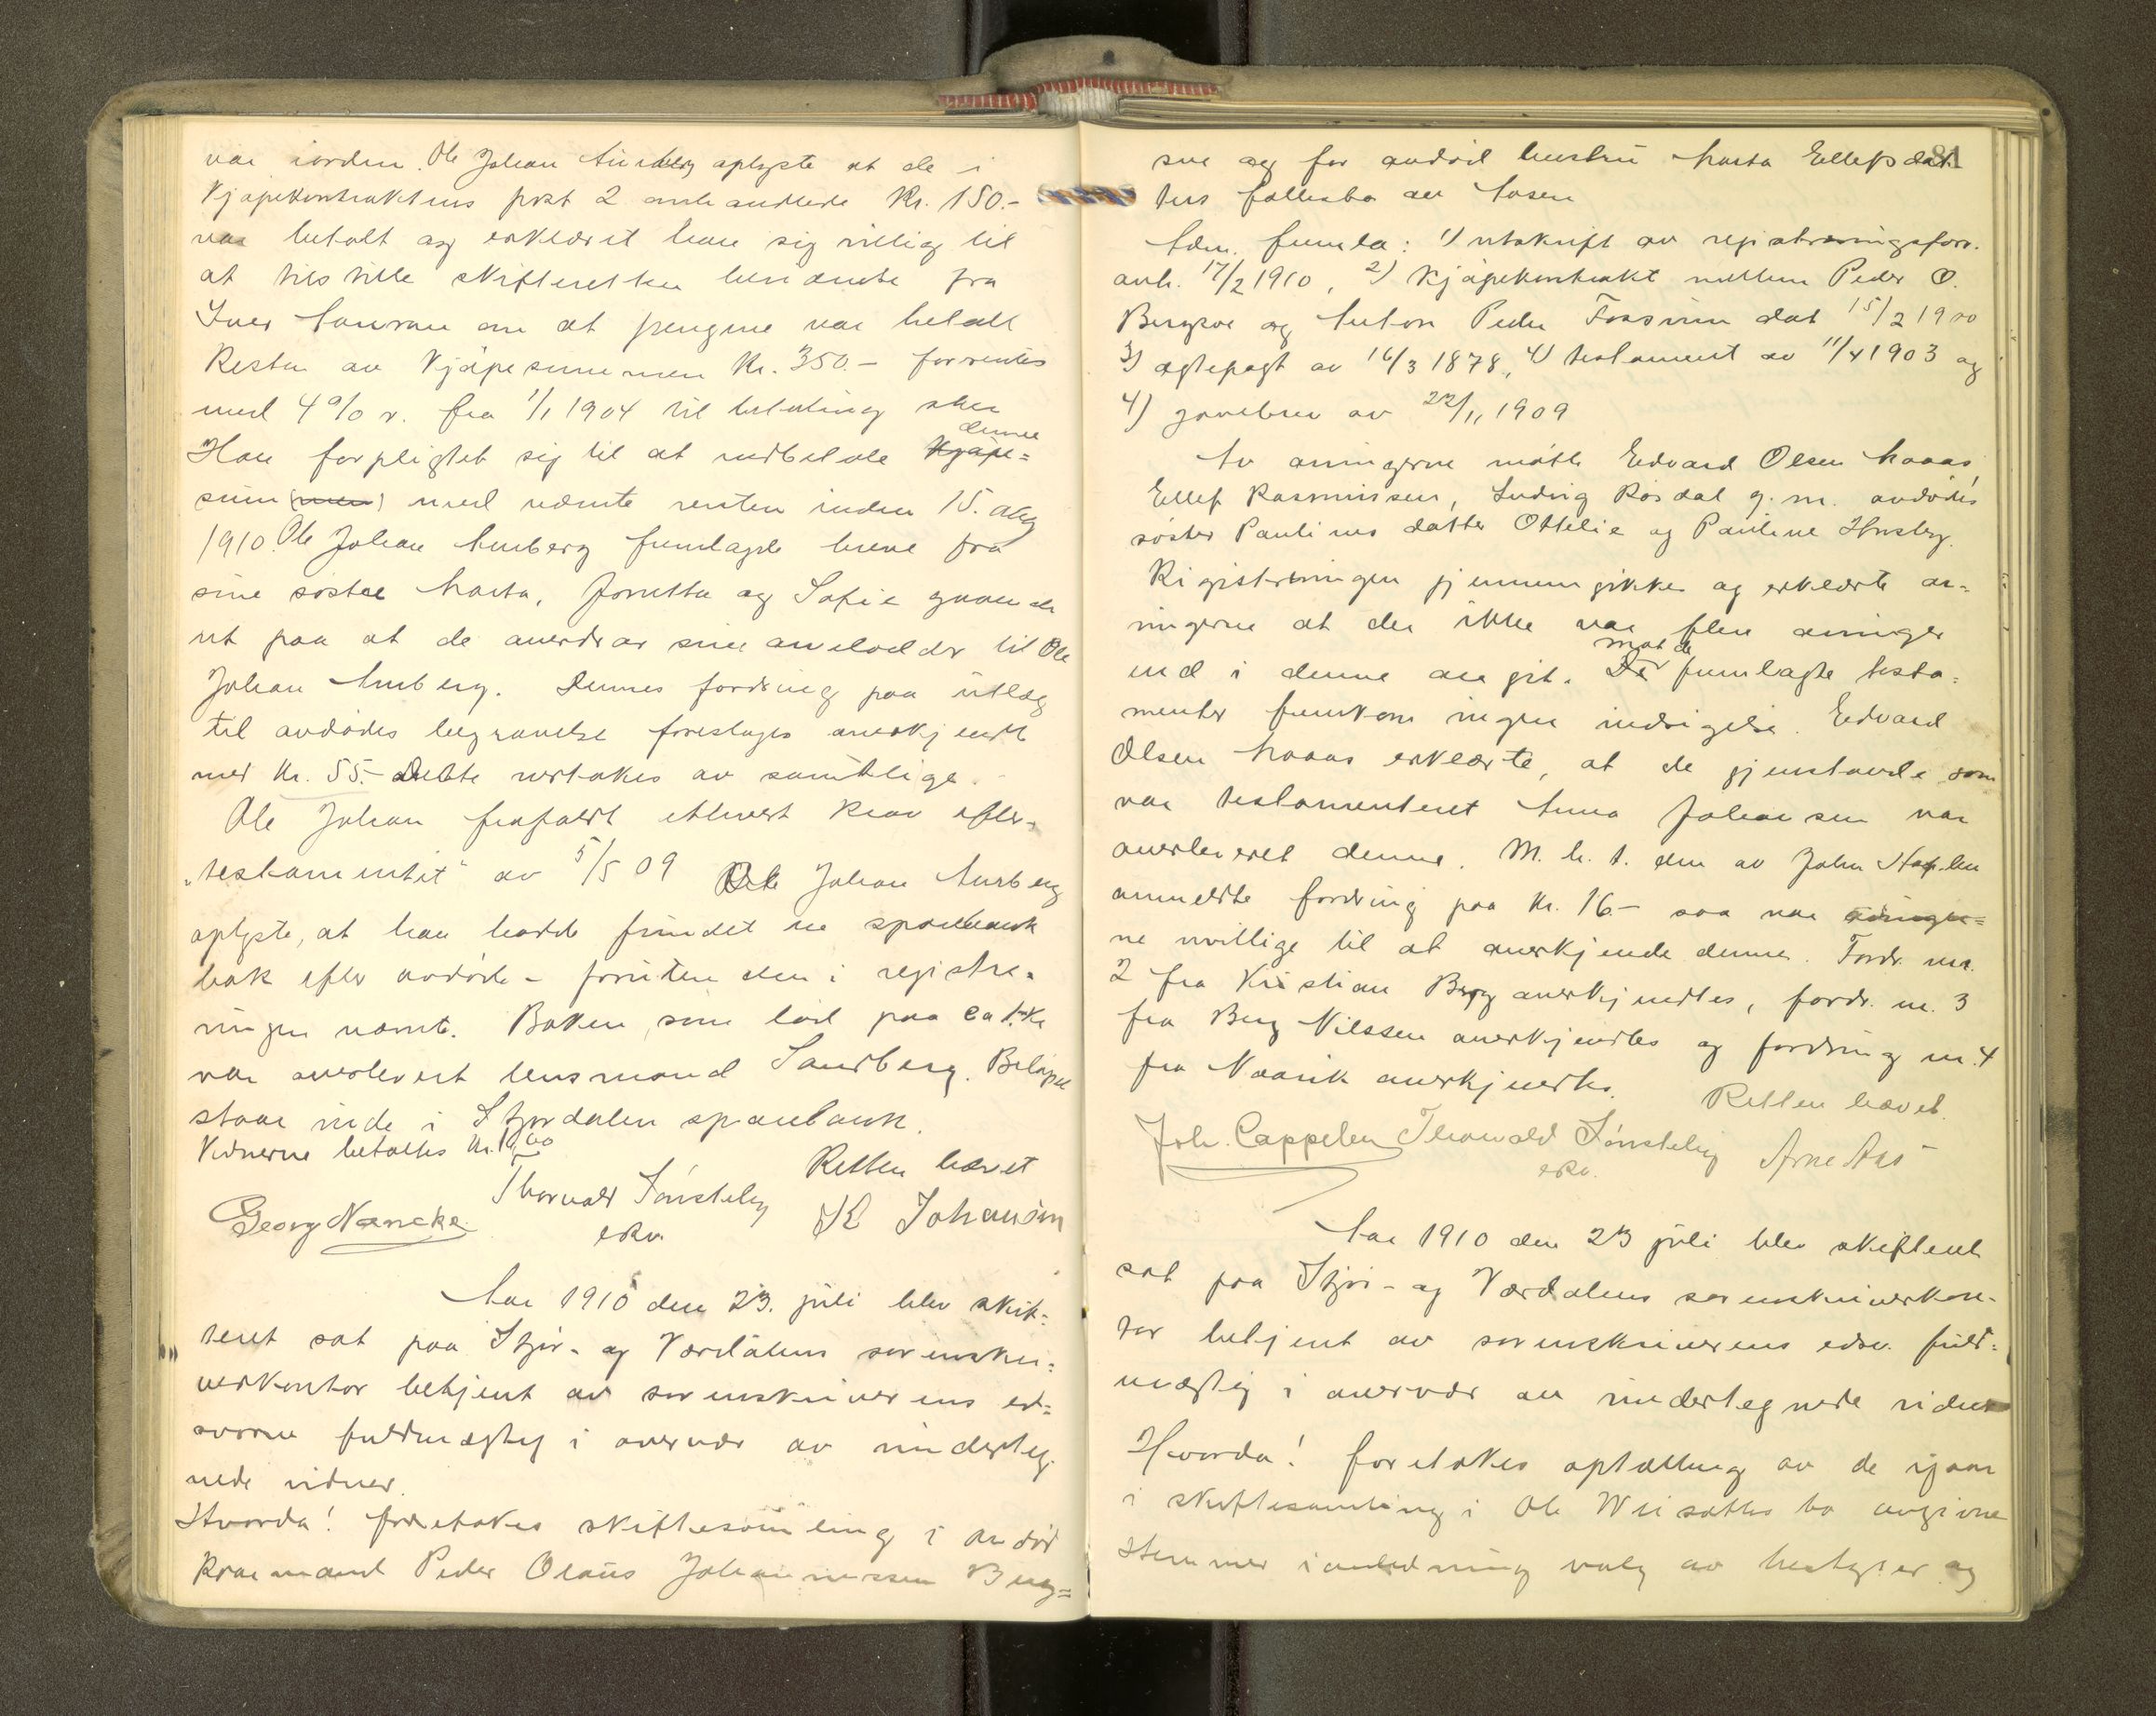 var iorden. Ole Johan Aunberg oplyste at de i
kjøpekontraktens post 2 omhandlede Kr. 150.-
var betalt og erklæret han sig villig til
at tilstille skifteretten bevidnelse fra
Iver om at pengene var betalt
Resten av kjøpesummen Kr. 350.- forrentes
med 4 % r. fra 1/1 1904 til betaling sker
denne
Han forpligtet sig til at indbetale kjøpe=
sum(men) med nævnte renten inden 15. aug
1910. Ole Johan Aunberg fremlagde breve fra
sine søstre Marta, Jonetta og Sofie gaaende
ut paa at de overdrar sine arvelodder til Ole
Johan Aunberg. Dennes fordring paa utlæg
til avdødes begravelse foreslages anerkjendt
med Kr. 55.- Dette vedtakes av samtlige.
Ole Johan frafaldt ethvert krav efter
"testamentet" av 5/5 09 Ole Johan Aunberg
oplyste, at han hadde fundet en sparebank
bok efter avdøde - foruten den i registre=
ringen nævnte. Boken, som lød paa ca 1 Kr
var overlevert lensmand Sandberg. Beløpet
staar inde i Stjørdalen sparebank.
Vidnerne betaltes Kr.
Retten hævet
Thorvald Tønsteby
Georg Nencke K Johansen
eRv.
Aar 1910 den 23. juli blev skif=
teret sat paa Stjør- og Værdalens sorenskri=
verkontor betjent av sorenskriverens ed=
svorne fuldmægtig i overvær av underteg
nede vidner.
Hvorda! foretokes skiftesamling i avdød
kaarmand Peder Olaus Johannessen Berg=
81
sve og før avdød hustru Marta Ellefsdat
ters fællesbo av Aasen
Adm. fremla: 1) utskrift av registreringsforr.
avh. 17/2 1910, 2) kjøpekontrakt mellem Peder O.
Bergsve og Anton Peder Fossvien dat 15/2 1900
3) ægtepagt av 16/3 1878, 4) testament av 11/4 1903 og
4) gavebrev av 22/11 1909
Av arvingerne møtte Edvard Olsen Moaas,
Ellef Rasmussen, Ludvig Røsdal g. m. avdødes
søster Paulines datter Ottelie og Pauline Husby.
Registreringen gjennemgikkes og erklærte ar=
vingerne at der ikke var flere arvinger
mot de
end i denne angit. De fremlagte testa=
menter fremkom ingen indsigelse. Edvard
Olsen Moaas erklærte, at de gjenstande som
var testamenteret Anna Johansen var
overleveret denne. M. h. t. den av John
anmeldte fordring paa Kr. 16.- saa var arvinger=
ne uvillige til at anerkjende denne. Fordr. nr.
2 fra Kristian Berg anerkjendtes, fordr. nr. 3
fra Berg Nilssen anerkjendtes og fordring nr. 4
fra anerkjendtes.
Retten hævet.
Joh. Cappelen Thorvald Tønsteby Arne Aas
eRv.
Aar 1910 den 23 juli blev skifteret
sat paa Stjør- og Værdalens sorenskriverkon-
tor betjent av sorenskriverens edsv. fuld=
mægtig i overvær av undertegnede vidner
Hvorda! foretokes optælling av de igaar
i skiftesamling i Ole Weisæths bo avgivne
stemmer i anledning valg av bestyrer og